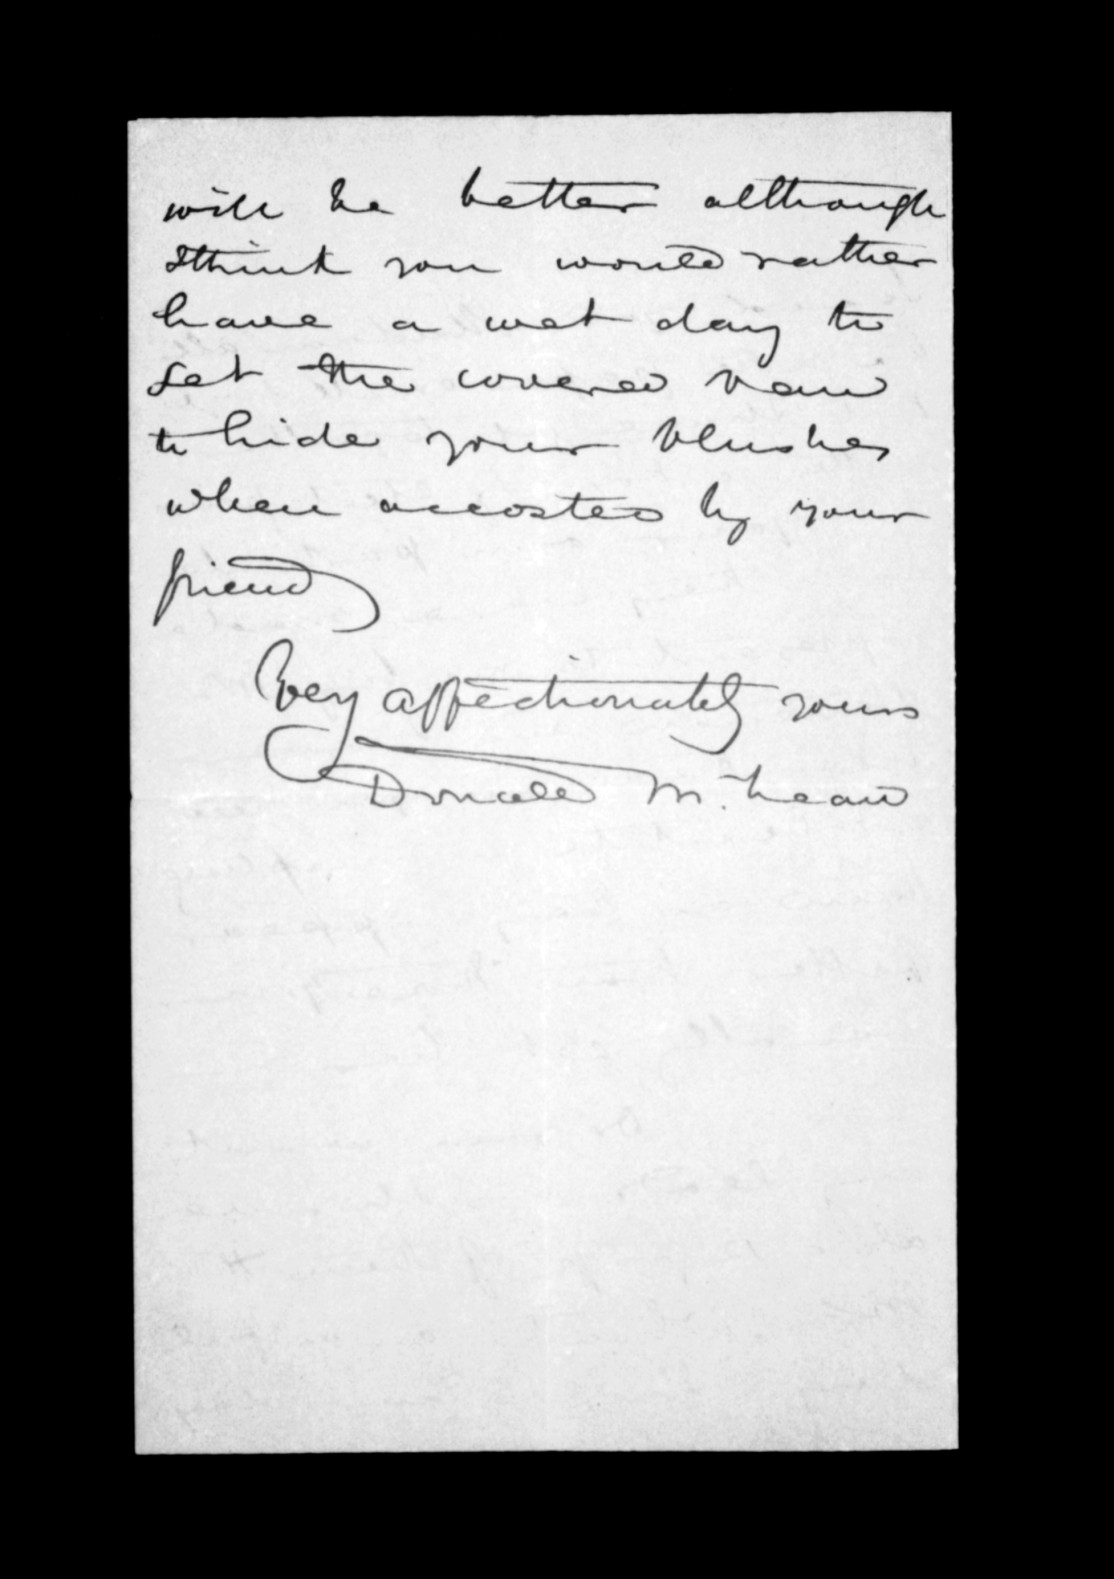 will be better although
I think you would rather
have a wet day to
get the covered van
to hide your blushes
when accosted by your
friend
Very affectionately yours
Donald McLean